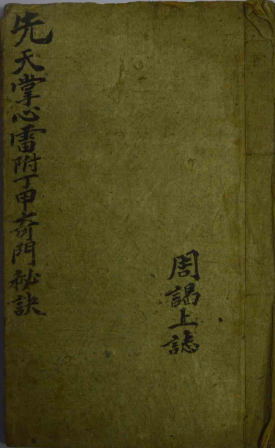 先天掌心雷附丁甲奇門秘訣
周謁上誌